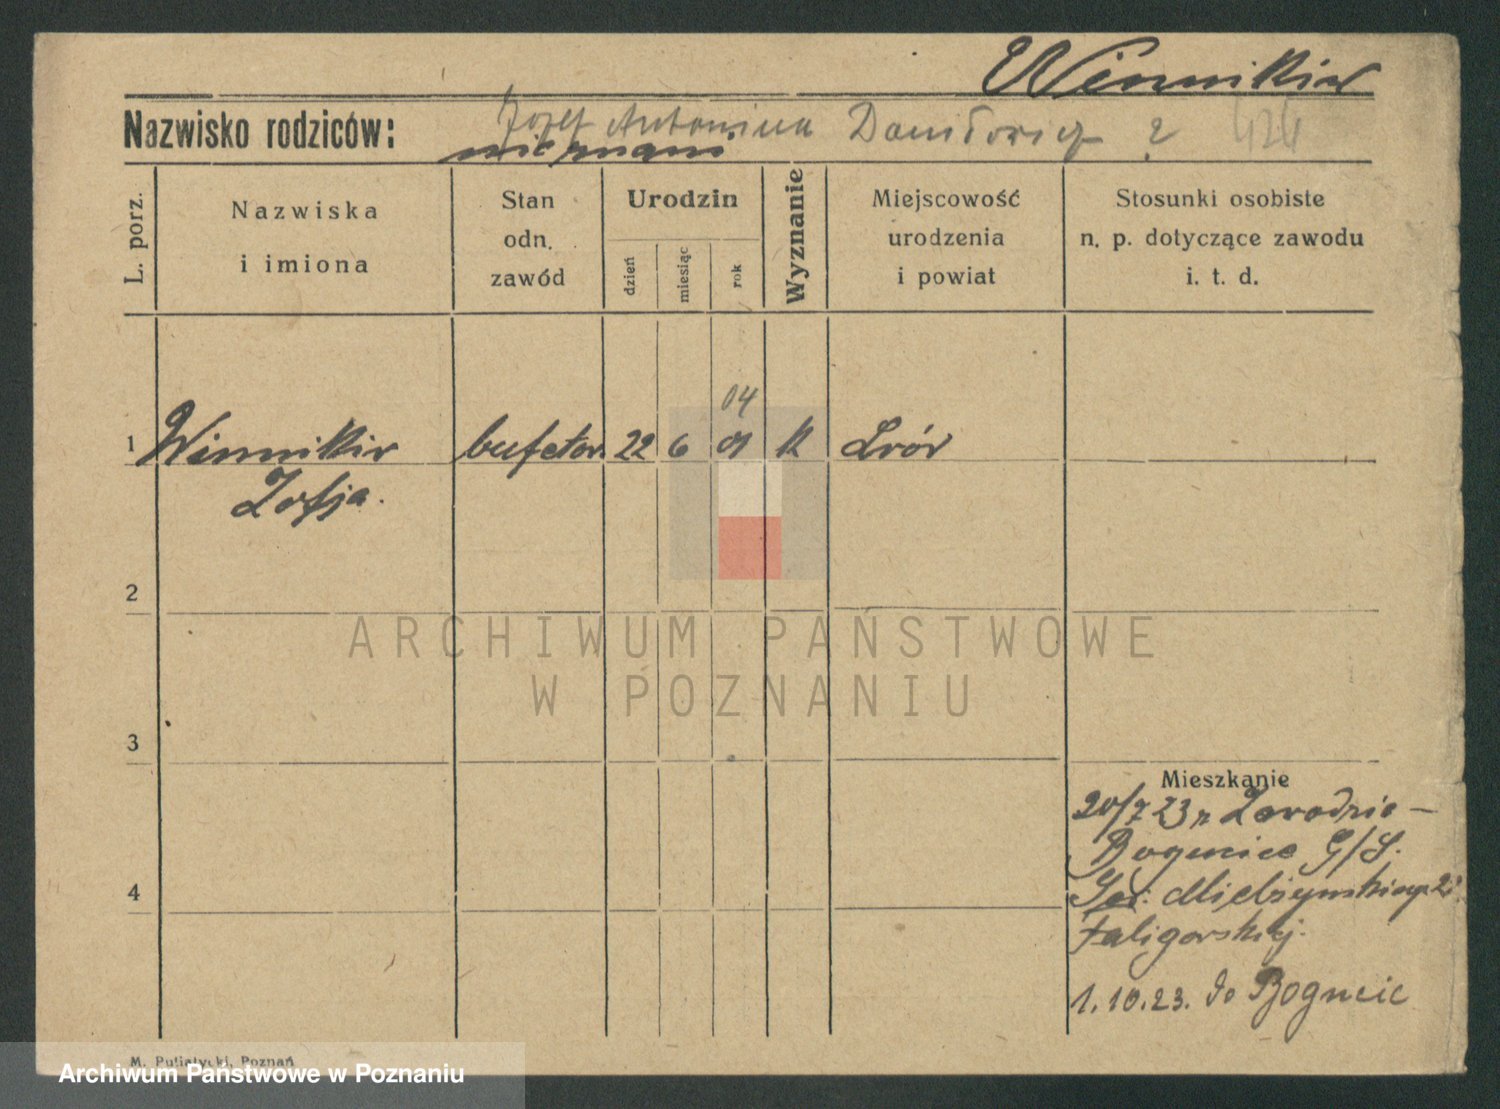 Winnikiw
Nazwisko rodziców: Józef Antonina Daniłowicz ?
nieznani
L. porz.
Nazwiska
i imiona
Stan
odn.
zawód
Urodzin
dzień
miesiąc
rok
Wyznanie
Miejscowość
urodzenia
i powiat
Stosunki osobiste
n. p. dotyczące zawodu
i. t. d.
04
1 Winnikiw bufetow. 22 6 01 k Lwów
Zofja.
2
3
4
Mieszkanie
20/7 23 z Zawodzie –
Bogucice G/S.
Mielżyńskiego 2
Faligorskiej.
1.10.23. do Bogucic
M. Putiatycki, Poznań
ARCHIWUM PAŃSTWOWE
W POZNANIU
Archiwum Państwowe w Poznaniu